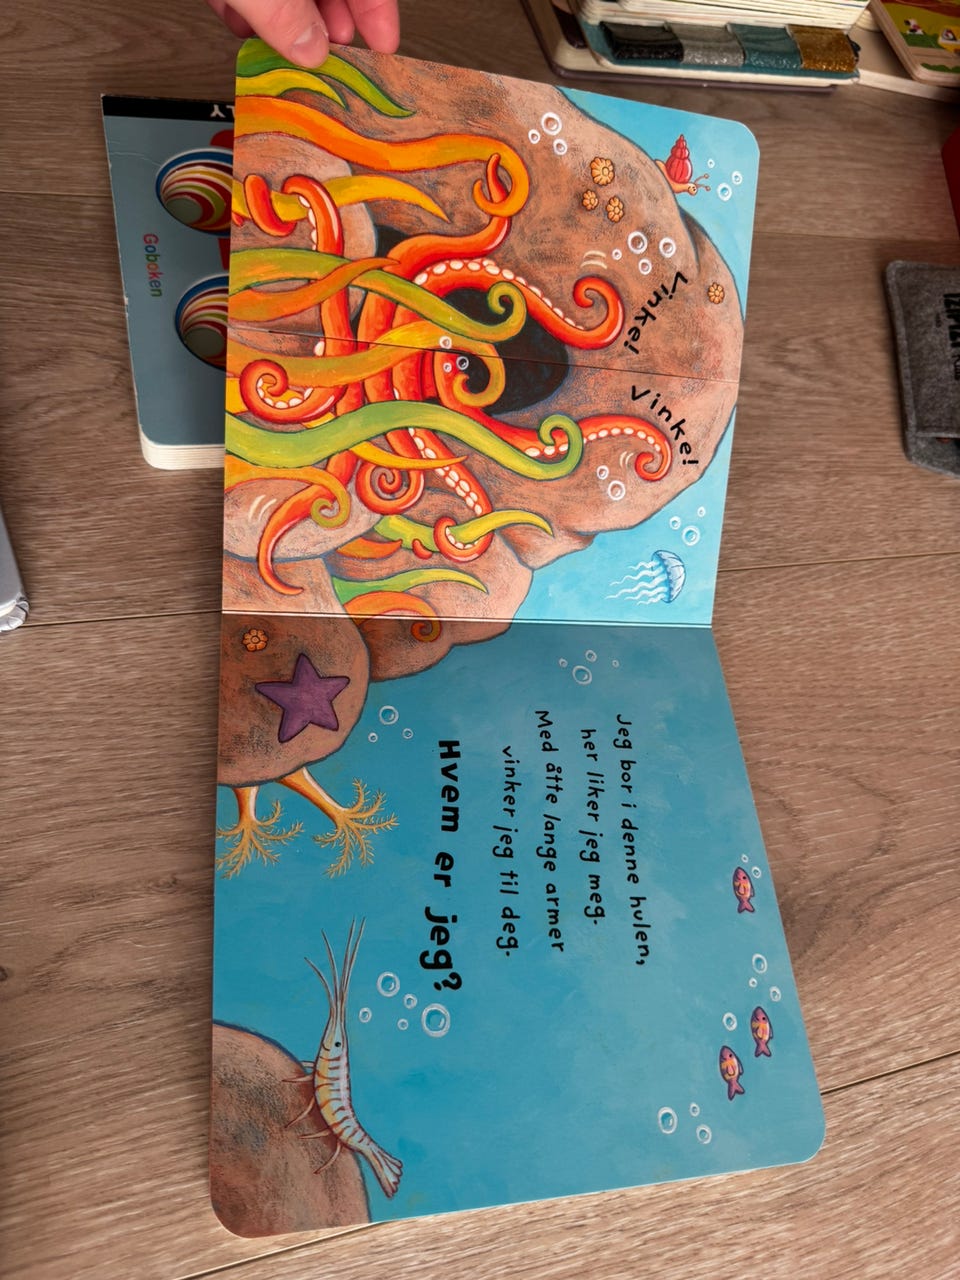 Vinke!
Vinke!
Jeg bor i denne hulen,
her liker jeg meg.
Med åtte lange armer
vinker jeg til deg.
Hvem er jeg?
Goboken
LY